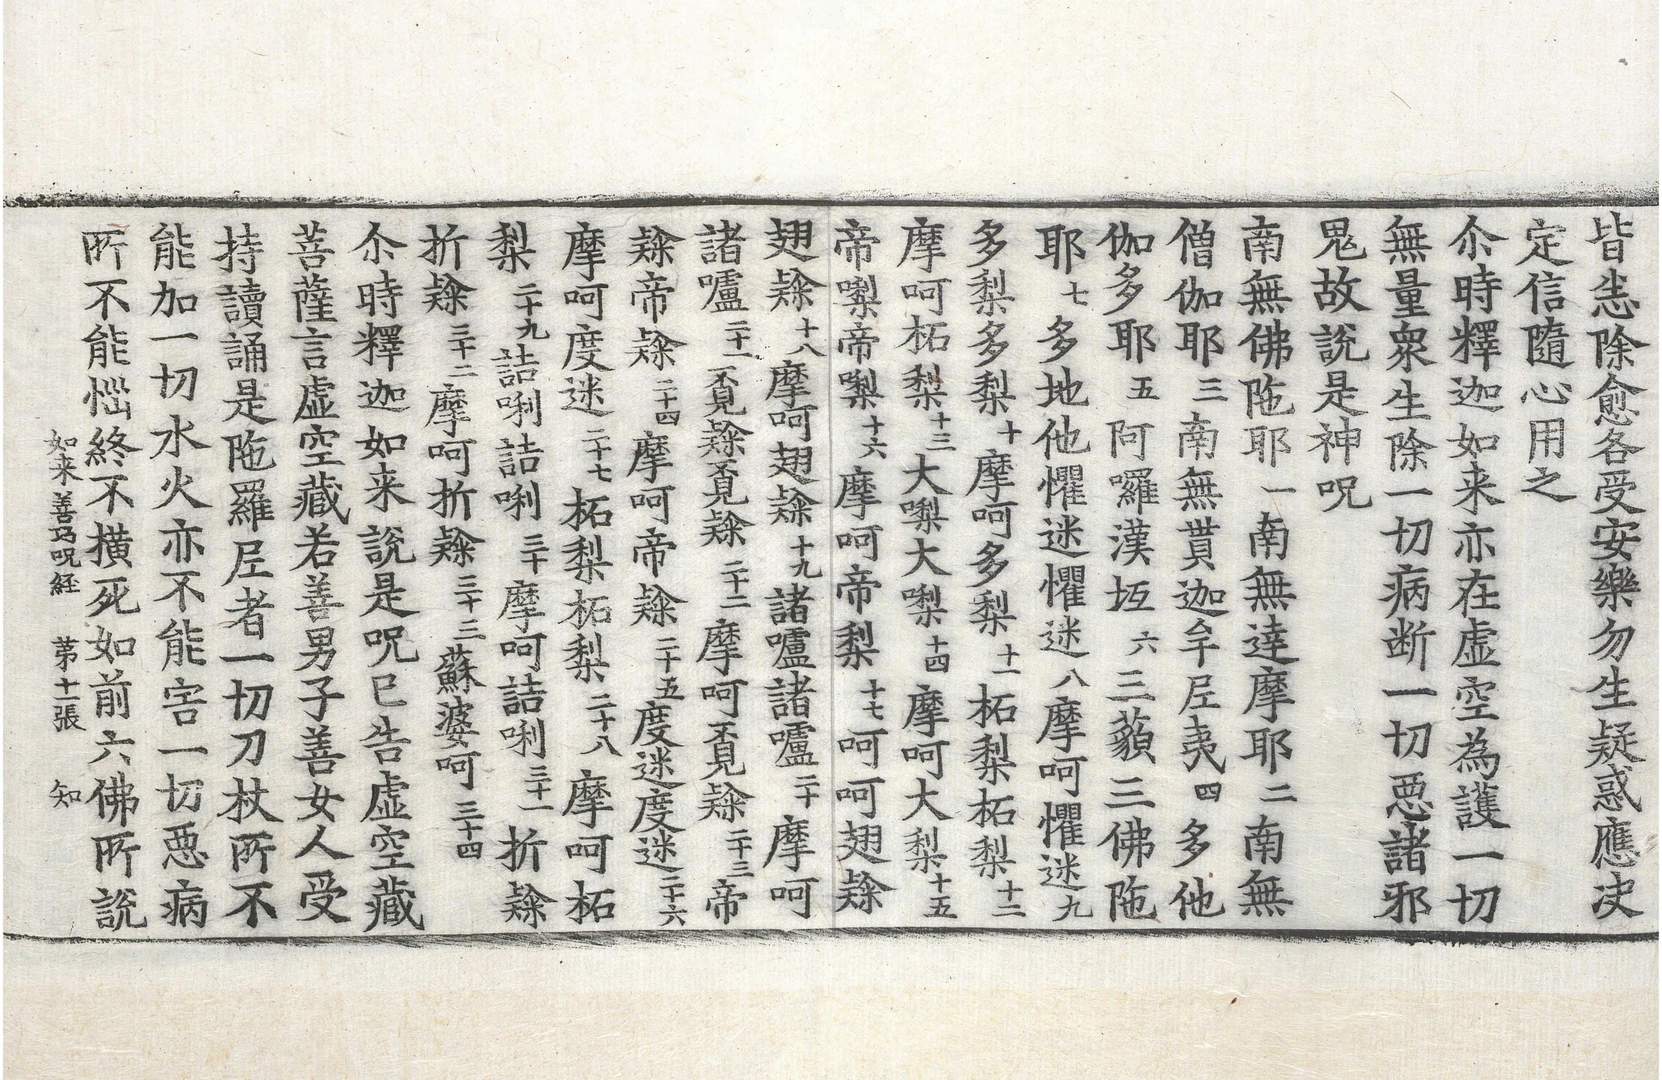 皆悉除愈各受安樂勿生疑惑應决
定信隨心用之
尒時釋迦如来亦在虚空為護一切
無量衆生除一切病断一切惡諸邪
鬼故説是神呪
南無佛陁耶一南無達摩耶二南無
僧伽耶三南無貰迦牟𡰱夷四多他
伽多耶五阿囉漢坘六三藐三佛陁
耶七多地他懼迷懼迷八摩呵懼迷九
多梨多梨十摩呵多梨十一柘梨柘梨十二
摩呵柘梨十三大㗚大㗚十四摩呵大梨十五
帝㗚帝㗚十六摩呵帝梨十七呵呵翅
翅十八摩呵翅十九諸嚧諸嚧二十摩呵
諸嚧二十一覔覔二十二摩呵覔二十三帝
帝二十四摩呵帝二十五度迷度迷二十六
摩呵度迷二十七柘梨柘梨二十八摩呵柘
梨二十九詰唎詰唎三十摩呵詰唎三十一折
折三十二摩呵折三十三蘇婆呵三十四
尒時釋迦如来説是呪已告虚空藏
菩薩言虚空藏若善男子善女人受
持讀誦是陁羅𡰱者一切刀杖所不
能加一切水火亦不能害一切惡病
所不能惱終不横死如前六佛所説
如来善巧呪経　苐十一張　知